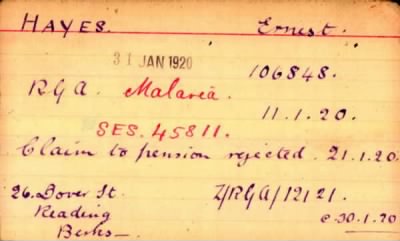 HAYES. Ernest.
31 JAN 1920
106848.
R.G.A. Malaria.
11.1.20.
SES. 45811.
Claim to pension rejected. 21.1.20.
26. Dover St. Z/RGA/12121.
Reading
Berks— 30.1.20